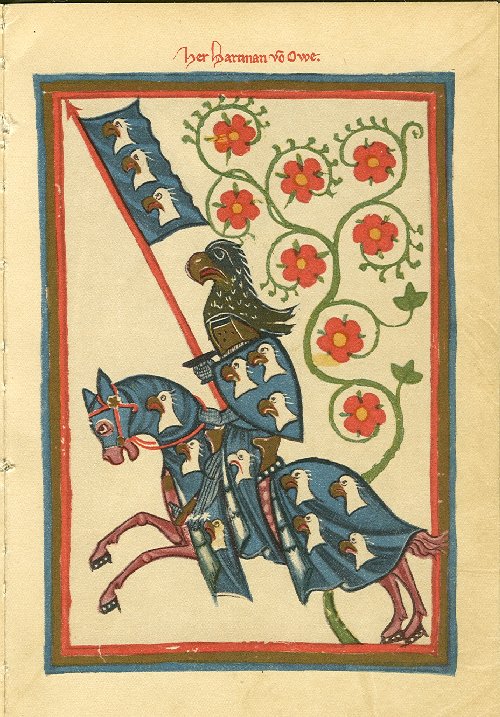 Her Hartman võ Owe.